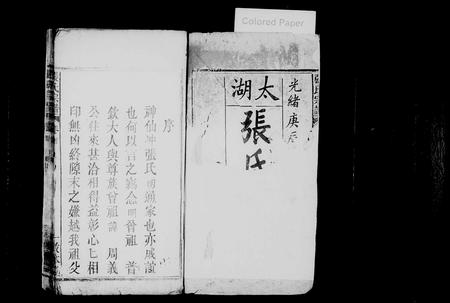 Colored Paper
光緒庚辰
太湖
張氏
序
神仙神張氏明通家也亦成誼
也何以言之寫念明曾祖普
欽大人與尊族曾祖諱周義
公往來甚洽相得益彰心匕相
印無凶終隙末之嫌越我祖父